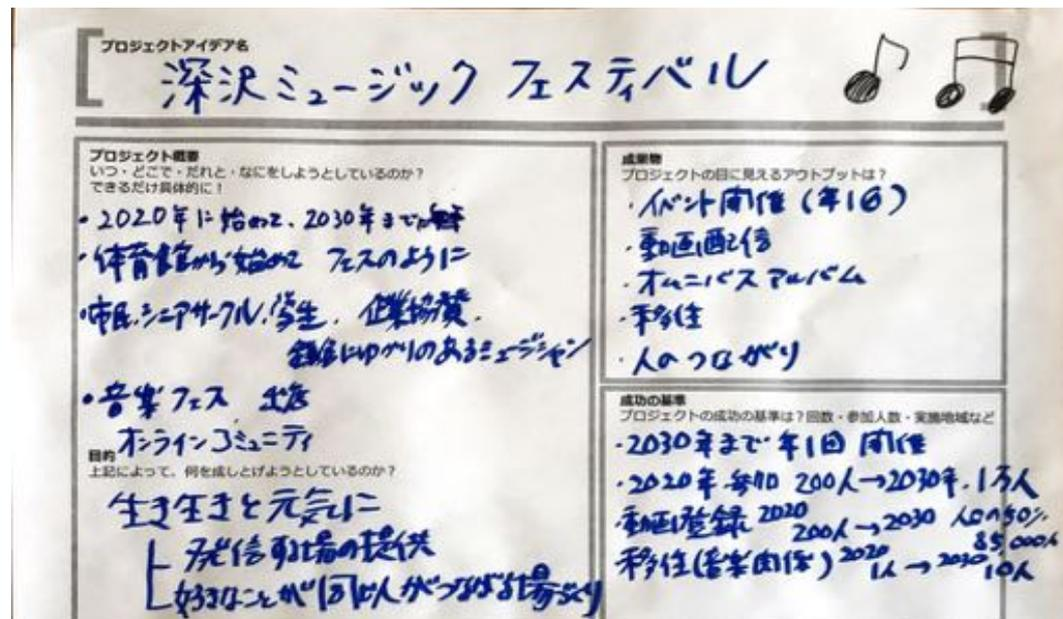 プロジェクトアイデア名
深沢ミュージック フェスティバル
プロジェクト概要
いつ・どこで・だれと・なにをしようとしているのか？
できるだけ具体的に！
・2020年に始めて、2030年まで
・体育館から始めて フェスのように
・市民、シニアサークル、学生、企業協賛、
鎌倉にゆかりのあるミュージシャン
・音楽フェス 出店
オンラインコミュニティ
目的
上記によって、何を成しとげようとしているのか？
生き生きと元気に
発信する場の提供
好きなことが同じ人がつながる場づくり
成果物
プロジェクトの目に見えるアウトプットは？
・イベント開催（年1回）
・動画配信
・オムニバスアルバム
・移住
・人のつながり
成功の基準
プロジェクトの成功の基準は？回数・参加人数・実施地域など
・2030年まで年1回 開催
・2020年 参加 200人→2030年、1万人
・動画登録 2020 200人→2030 人口の50%
85,000人
移住(音楽関係) 2020 1人→2030 10人